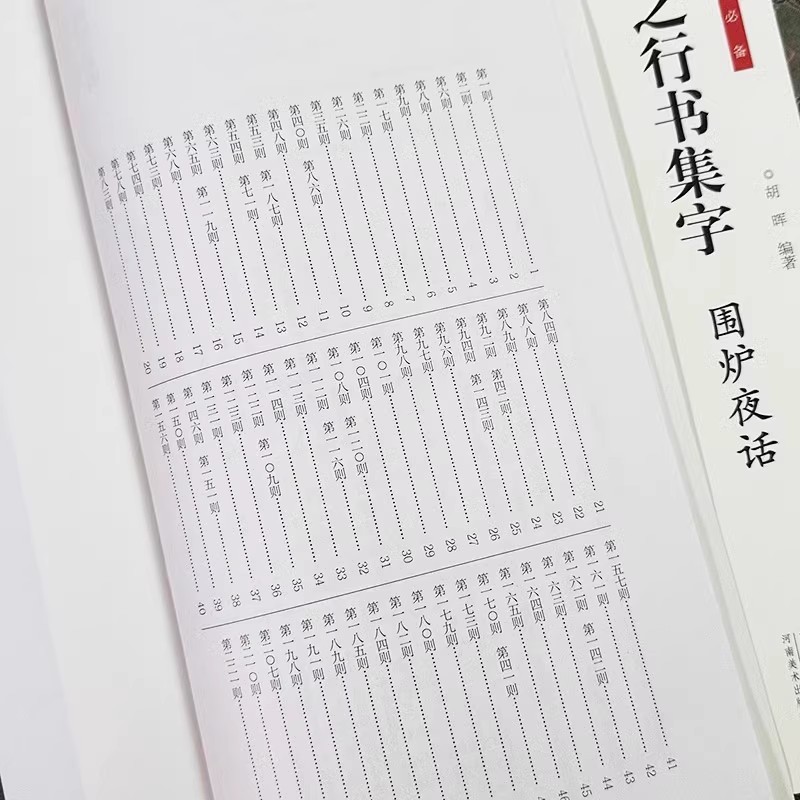 之行书集字 围炉夜话
必备
◎胡晖 编著
河南美术出版
第一则 1
第二则 2
第六则 3
第八则 4
第九则 5
第一七则 6
第二二则 7
第二六则 8
第三五则 9
第四〇则 第八六则 10
第四八则 11
第五三则 第一八七则 12
第五四则 第七一则 13
第六三则 14
第六五则 第一一九则 15
第六八则 16
第七三则 17
第七四则 18
第七八则 19
第八三则 20
第八四则 21
第八八则 22
第八九则 23
第九二则 第四二则 24
第九四则 第一四三则 25
第九六则 26
第九七则 27
第九八则 28
第一〇一则 29
第一〇四则 30
第一〇八则 第一二〇则 31
第一一二则 第一一六则 32
第一一三则 33
第一一四则 第一〇九则 34
第一二二则 35
第一二三则 36
第一三一则 37
第一四六则 第一五一则 38
第一五〇则 39
第一五六则 40
第一五七则 41
第一六一则 第一四二则 42
第一六二则 43
第一六三则 44
第一六四则 45
第一六五则 第四一则 46
第一七〇则
第一七三则
第一七九则
第一八〇则
第一八二则
第一八四则
第一八五则
第一八九则
第一九一则
第一九八则
第二〇七则
第二一〇则